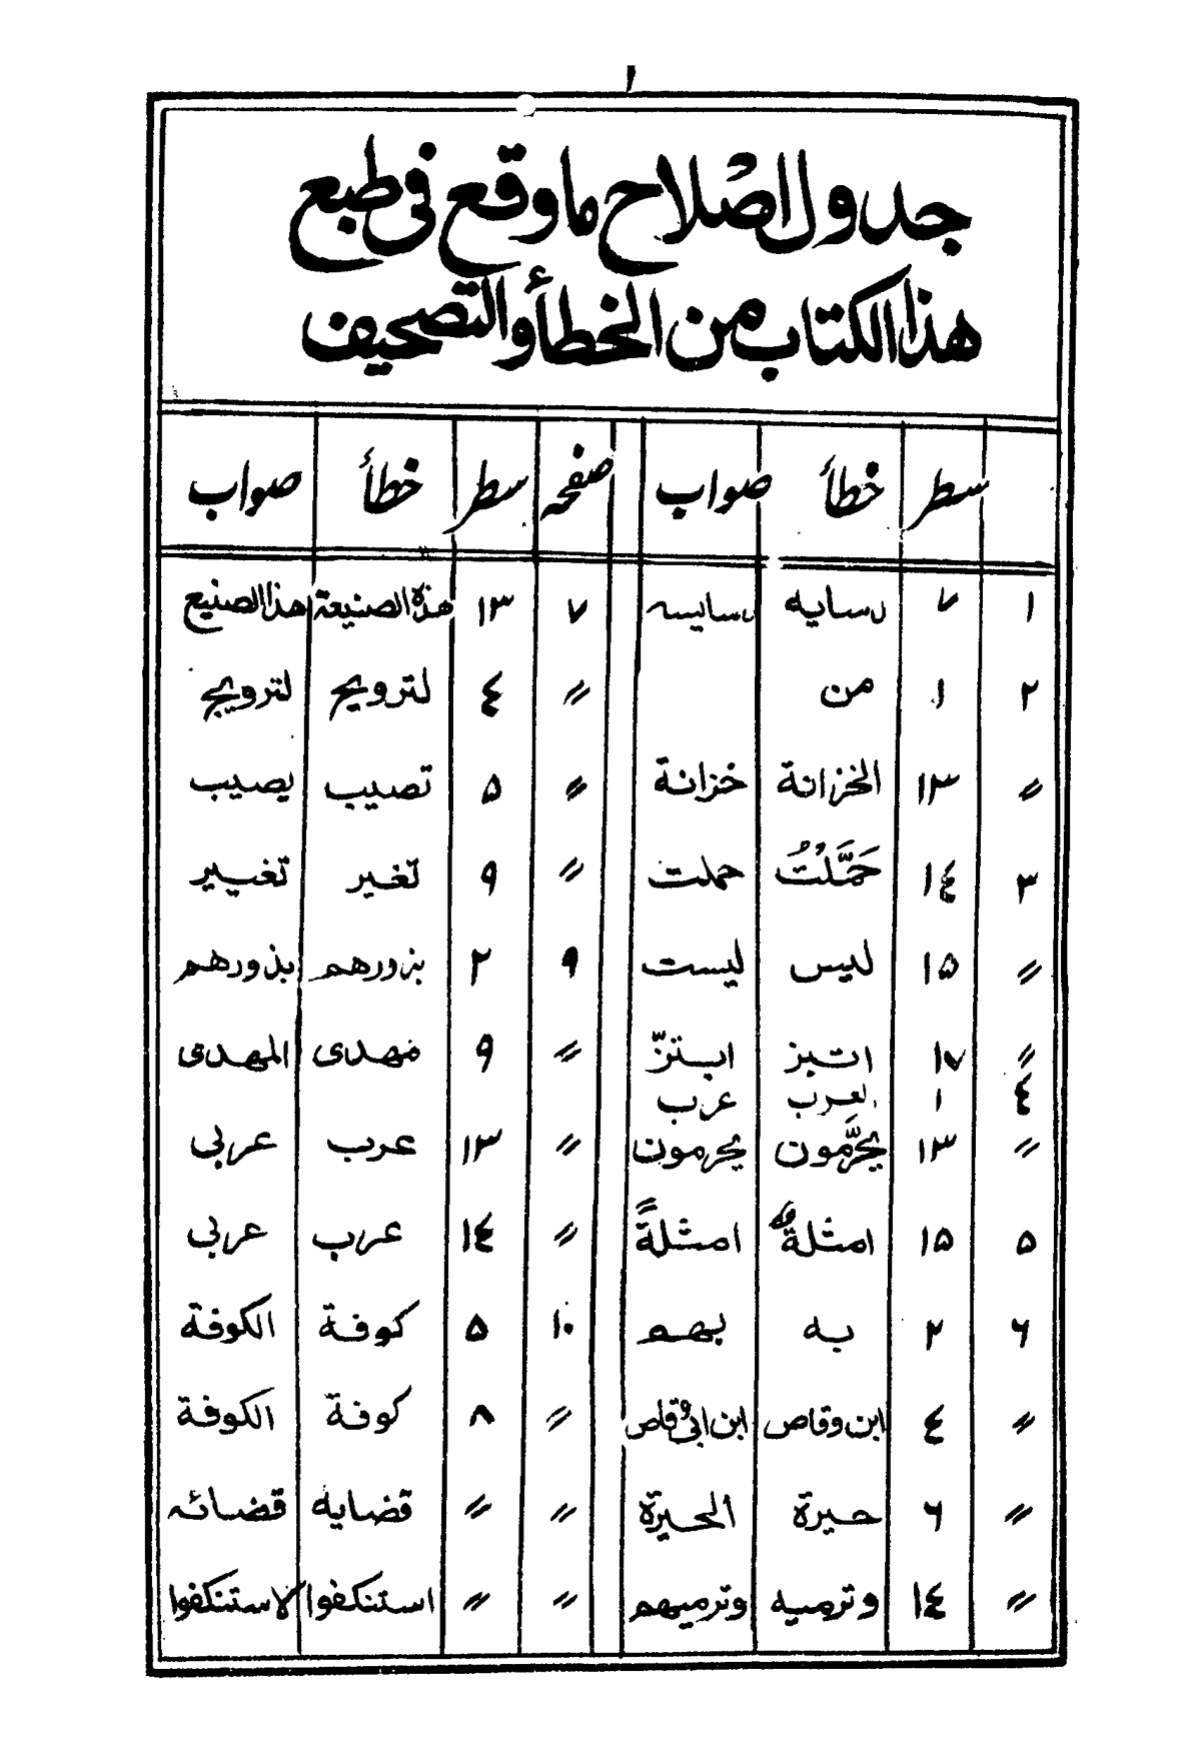 ١
جدول اصْلاح ما وقع في طبع
هذا الكتاب من الخطأ والتصحيف
سطر خطأ صواب صفحہ سطر خطأ صواب
١ ٧ دسايه دسايسه ٧ ١٣ هذه الصنيعة هذا الصنيع
٢ ١ من 〃 ٤ لترويح لترويج
〃 ١٣ الخزانة خزانة 〃 ٥ تصيب يصيب
٣ ١٤ حَمَّلْتُ حملت 〃 ٩ تغير تغيير
〃 ١٥ ليس ليست ٩ ٢ بزورهم بذورهم
〃 ١٧ اتبز ابتزّ 〃 ٩ مهدى المهدى
٤ ١ لعرب عرب
〃 ١٣ يحرّمون يحرمون 〃 ١٣ عرب عربي
٥ ١٥ امثلة امثلةً 〃 ١٤ عرب عربي
٦ ٢ به بهم ١٠ ٥ كوفة الكوفة
〃 ٤ ابن وقاص ابن ابي وقاص 〃 ٨ كوفة الكوفة
〃 ٦ حيرة الحيرة 〃 〃 قضايه قضائه
〃 ١٤ وترميه وترميهم 〃 〃 استنكفوا لاستنكفوا